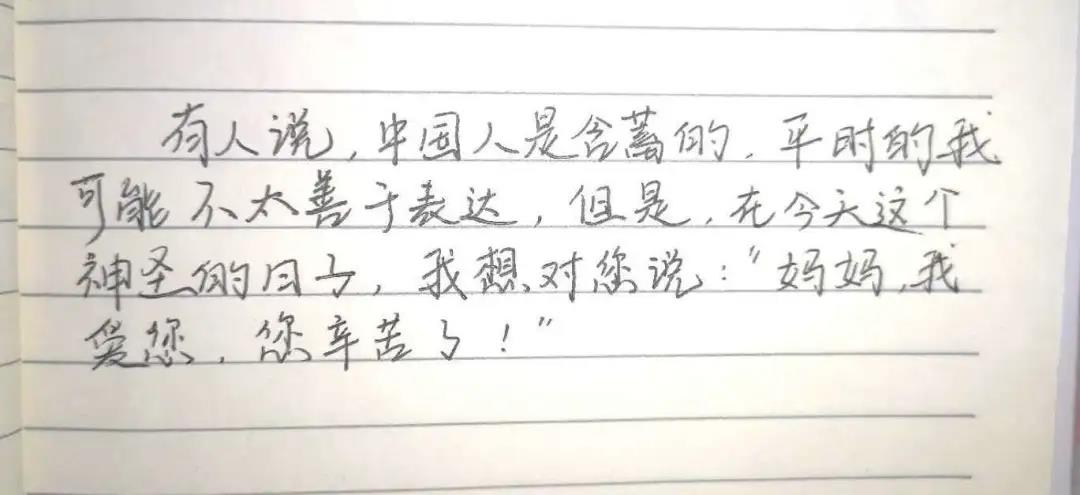 有人说,中国人是含蓄的,平时的我
可能不太善于表达,但是,在今天这个
神圣的日子,我想对您说:“妈妈,我
爱您,您辛苦了!”